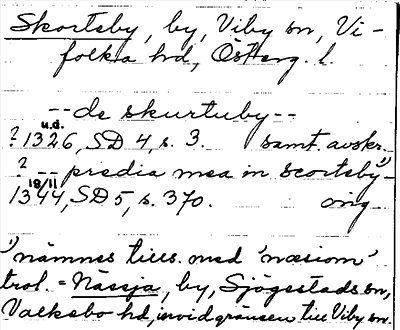 Skortsby, by, Viby sn, Vi-
folka hd, Österg. l.
-- de skurtuby --
u.d.
? 1326, SD 4, s. 3. samt. avskr.
? -- predia mea in scortsby 1)
18/11
1344, SD 5, s. 370. orig.
1) nämnes tills. med 'næsiom'
trol. = Nässja, by, Sjögestads sn,
Valkebo hd, invid gränsen till Viby sn.